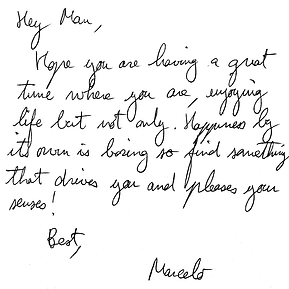 Hey Man,
Hope you are having a great
time where you are, enjoying
life but not only. Happiness by
it's own is boring so find something
that drives you and pleases your
senses!
Best,
Marcelo